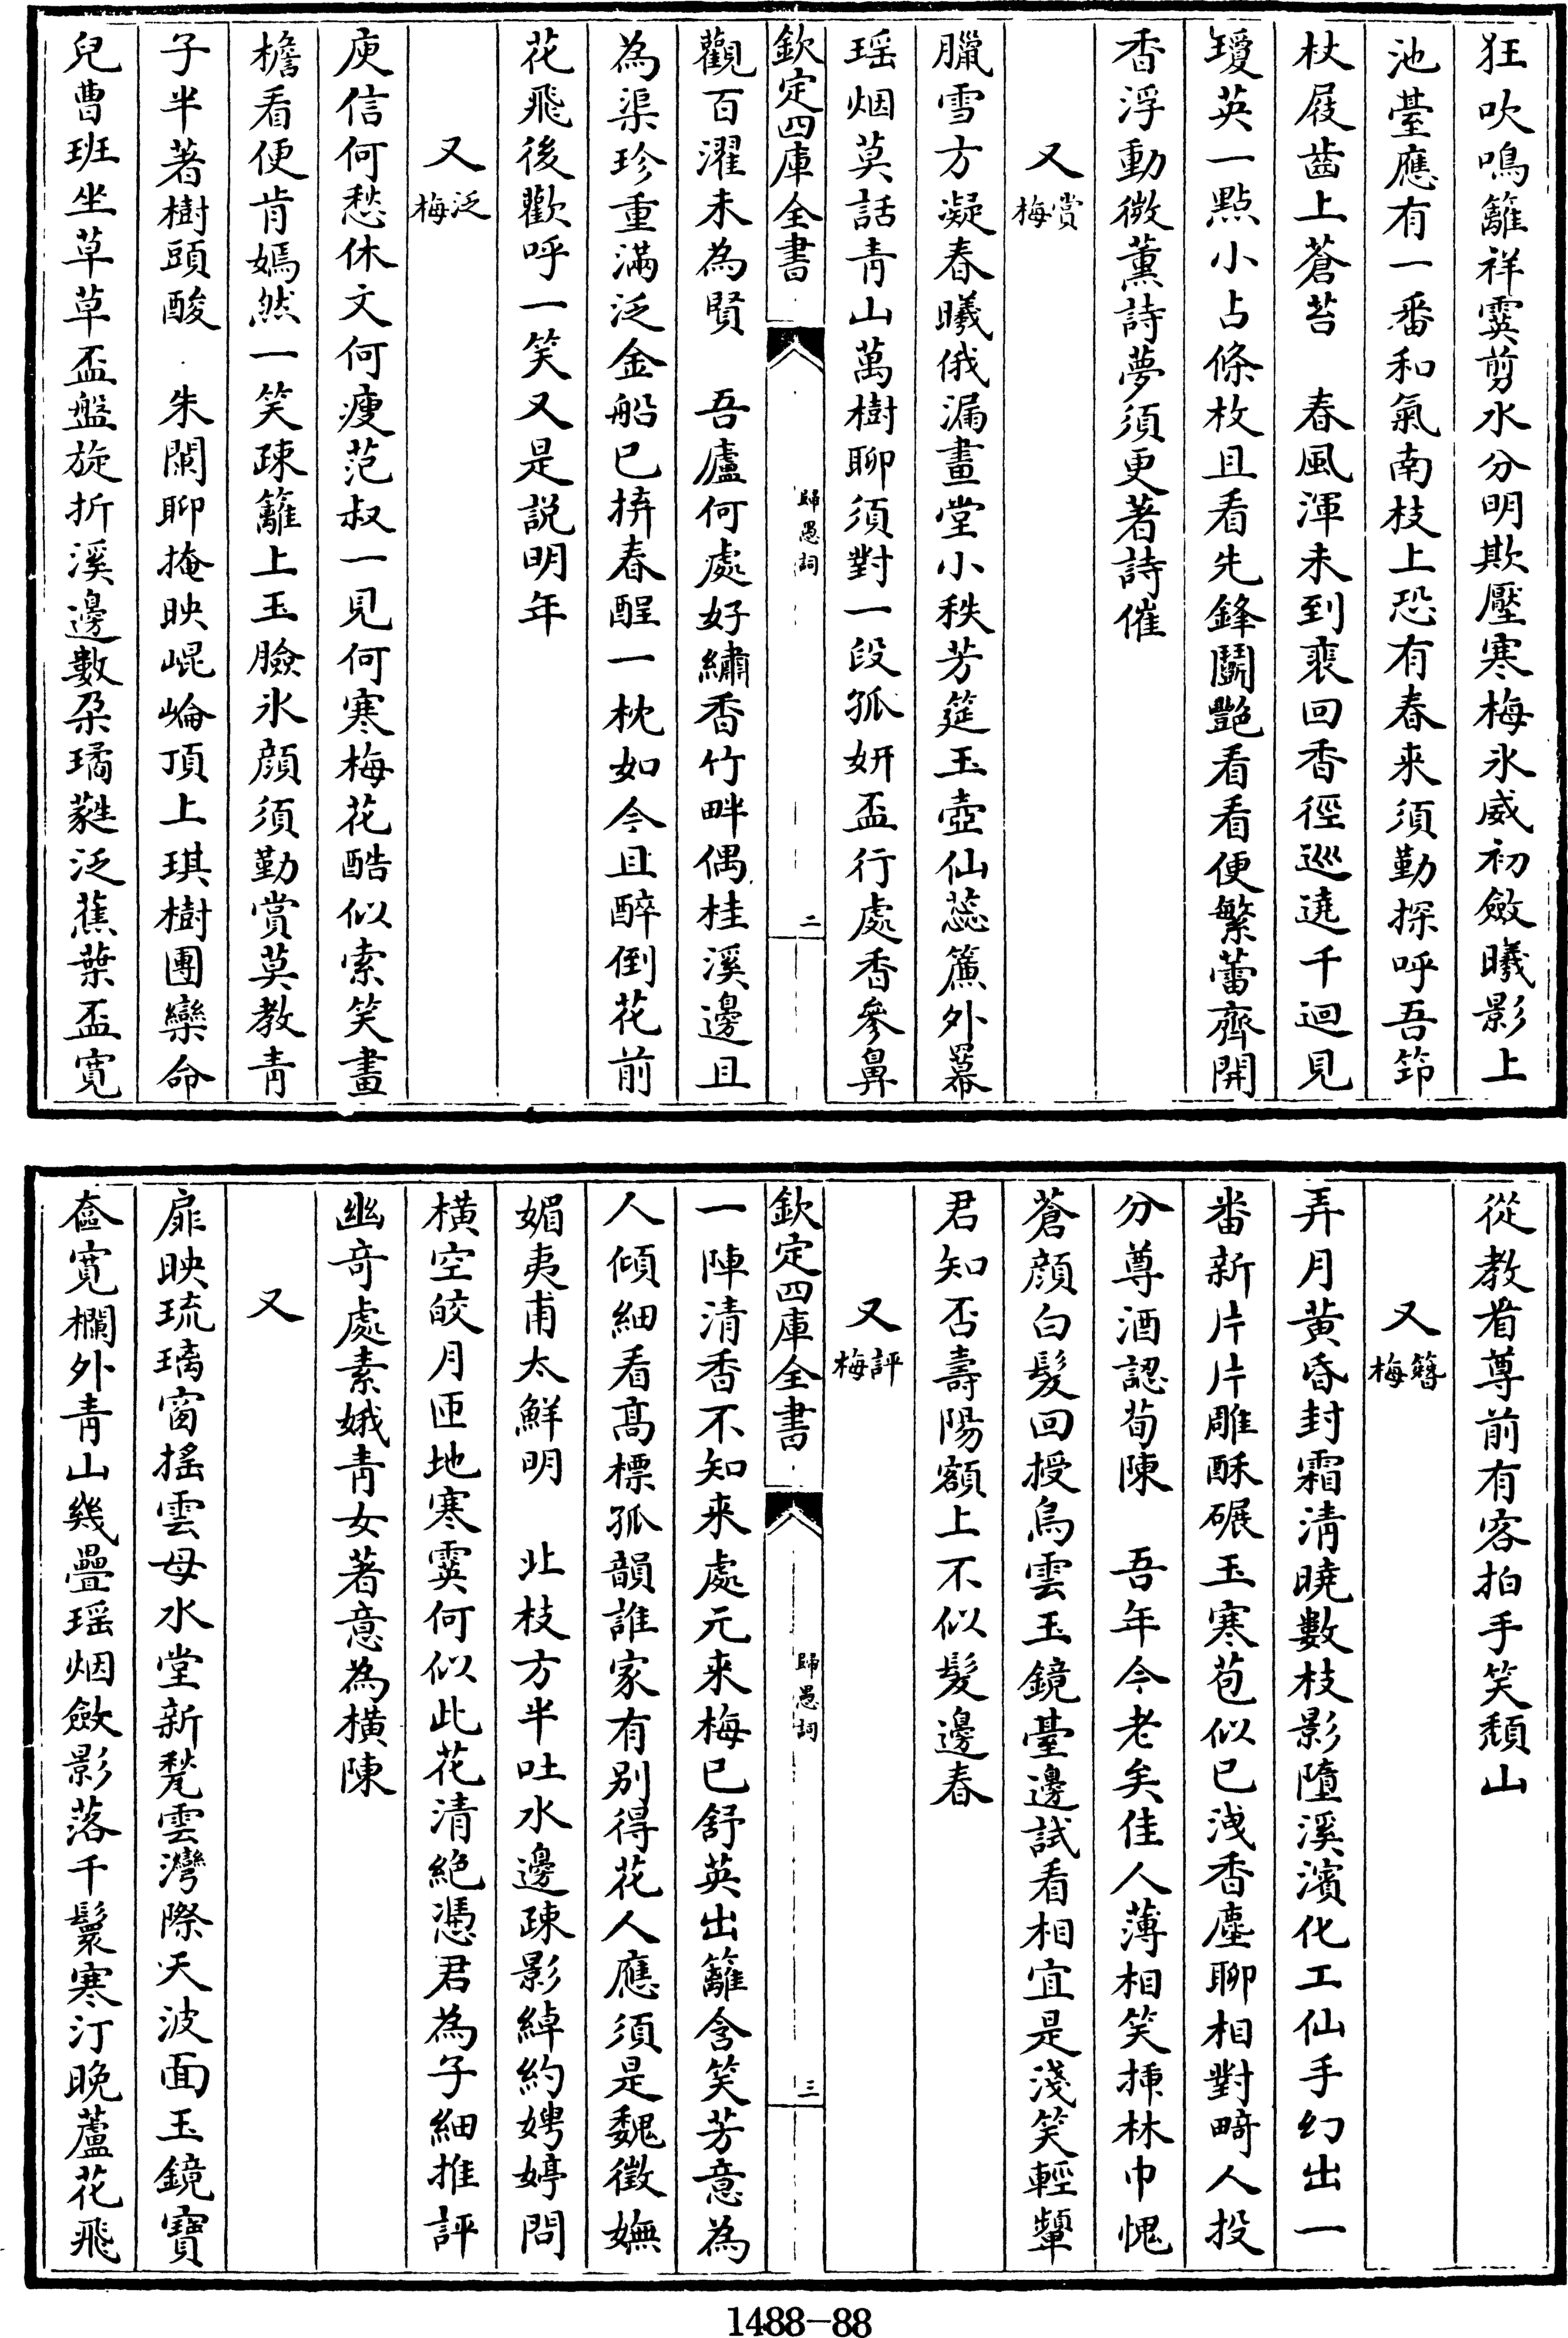 狂吹鳴籬祥霙剪水分明欺壓寒梅氷威初斂曦影上
池臺應有一番和氣南枝上恐有春来須勤探呼吾筇
杖屐齒上蒼苔　春風渾未到裵回香徑巡遶千迴見
瓊英一點小占條枚且看先鋒鬭艶看看便繁蕾齊開
香浮動微薰詩夢須更著詩催
又賞梅
臘雪方凝春曦俄漏畫堂小秩芳筵玉壺仙蕊簾外幕
瑶烟莫話青山萬樹聊須對一段孤妍盃行處香參鼻
欽定四庫全書
歸愚詞
二
觀百濯未為賢　吾廬何處好繡香竹畔偶桂溪邊且
為渠珍重滿泛金船已拚春酲一枕如今且醉倒花前
花飛後歡呼一笑又是説明年
又泛梅
庾信何愁休文何瘦范叔一見何寒梅花酷似索笑畫
檐看便肯嫣然一笑疎籬上玉臉氷顔須勤賞莫教青
子半著樹頭酸　朱闌聊掩映崐崘頂上琪樹團欒命
兒曹班坐草草盃盤旋折溪邊數朶璚蕤泛蕉葉盃寛
從教看尊前有客拍手笑頽山
又簪梅
弄月黄昏封霜清曉數枝影墮溪濱化工仙手幻出一
番新片片雕酥碾玉寒苞似已洩香塵聊相對畸人投
分尊酒認荀陳　吾年今老矣佳人薄相笑揷林巾愧
蒼顔白髮回授烏雲玉鏡臺邊試看相宜是淺笑輕顰
君知否壽陽額上不似髮邊春
又評梅
欽定四庫全書
歸愚詞
三
一陣清香不知来處元来梅已舒英出籬含笑芳意為
人傾細看髙標孤韻誰家有别得花人應須是魏徵嫵
媚夷甫太鮮明　北枝方半吐水邊疎影綽約娉婷問
横空皎月匝地寒霙何似此花清絶憑君為子細推評
幽竒處素娥青女著意為横陳
又
扉映琉璃窗揺雲母水堂新甃雲灣際天波面玉鏡寶
奩寛欄外青山幾疊瑶烟斂影落千鬟寒汀晚蘆花飛
1488-88